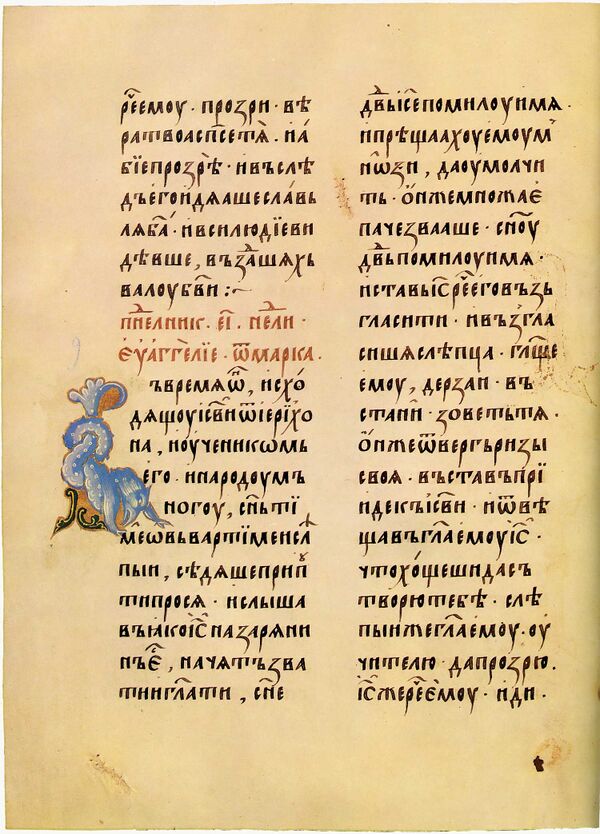 рч҃еемоу · прозри · вѣ
ратвоасп҃сетѧ҆ · и҆а҆
бїепрозрѣ · ивъслѣ
дъегоидѧашеславь
лѧба҃ · ивсилюдїеви
дѣвше, въздашѧхъ
валоубг҃ви :~
пн҃елник · еі · нел҃и ·
еѵаггелїе · ѿмарка ·
ъвремѧѡ҃, исхо
дѧщоуіс҃виѿїерїхо
на, иоученикомь
его · инародоумъ
ногоу, сн҃ътї
меѡвьвартїмеисл
пыи, сѣдѧшеприп
типросѧ · ислыша
въꙗкоіс҃назарѧни
нъе҃, начѧтъзва
тииглати, сн҃е
дв҃ыіс҃епомилоуимѧ ·
ипрѣщаахоуемоум
нѡѕи, даоумолчи
ть · ѡнжемножае
пачезвааше · сн҃оу
дв҃ъпомилоуимѧ ·
иставъіс҃рч҃ееговъзь
гласити · ивъзгла
сишѧслѣпца · гл҃ще
емоу, дерзаи · въ
стани зоветьтѧ ·
ѡнжеѿвергъризы
своѧ · въставъпрї
идекъіс҃ви · иѿвѣ
щавъгл҃аемоуіс҃ ·
чтохощешидасъ
творютебѣ · слѣ
пыижегл҃аемоу · оу
чителю дапрозрю ·
іс҃жерч҃еемоу · иди ·